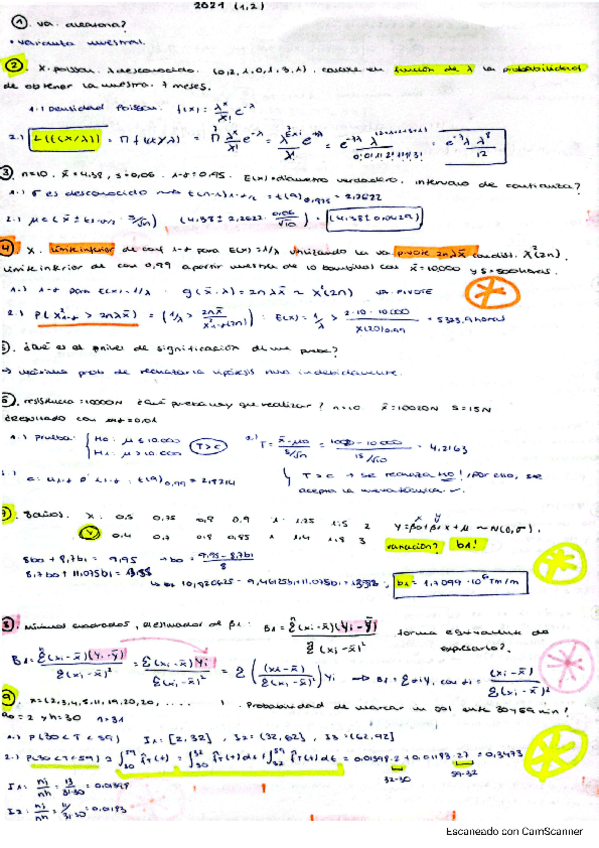 2021 (1,2)
① va. aleatoria?
• varianza muestral.
② X. poisson. λ desconocido. (0,2,1,0,1,3,1). calcule en función de λ la probabilidad
de obtener la muestra. 7 meses.
1.) densidad Poisson: f(x) = λ^x/x! e^-λ
2.) L((X/λ)) = Π f(x/λ) = Π λ^x/x! e^-λ = λ^Σxi/x! e^-nλ = e^-7λ λ^0+2+1+0+1+3+1/0!2!1!0!1!3!1! = e^-7λ λ^8/12
③ n=10. x̄ = 4,38, s=0,06. 1-α=0,95. E(x)=diámetro verdadero, intervalo de confianza?
1.) σ es desconocido → t(n-1)1-α/2 = t(9)0,975 = 2,2622
2.) μ ∈ (x̄ ± t S/√n) (4,38 ± 2,2622 · 0,06/√10) = (4,38 ± 0,0429)
④ X. límite inferior de conf 1-α para E(x)=1/λ utilizando la va pivote 2nλx̄ con dist. X²(2n).
Límite inferior de conf 0,99 a partir muestra de 10 bombillas con x̄=10.000 y S=500 horas.
1.) 1-α para E(x)=1/λ g(x̄,λ) = 2nλx̄ ~ X²(2n) va PIVOTE
2.) P(X²1-α > 2nλx̄) = (1/λ > 2nx̄/X²1-α(2n)) : E(x) = 1/λ > 2·10·10.000/X(20)0,99 = 5323,9 horas
⑤. ¿Qué es el nivel de significación de una prueba?
→ Máxima prob de rechazar la hipótesis nula indebidamente.
⑥. resistencia = 10000N ¿Qué prueba hay que realizar? n=10 x̄=10020N S=15N
¿resultado con α=0,01
1.) prueba: { H0: μ ≤ 10.000 T>c 2.) T = x̄-μ0/S/√n = 10020-10.000/15/√10 = 4,2163
H1: μ > 10.000
t(9)0,99 = 2,8214 T>c → se rechaza H0!, por ello, se
acepta la nueva técnica
⑦. 8 años. X: 0,5 0,75 0,8 0,9 1 1,25 1,5 2 Y = β0+β1x+μ ~ N(0,σ).
Y 0,4 0,7 0,8 0,85 1 1,4 1,8 3 variación? b1!
8b0 + 8,7b1 = 9,95 → b0 = 9,95-8,7b1/8
8,7b0 + 11,075b1 =
→ 10,820625 - 9,46125b1 + 11,075b1 = b1 = 1,7094 · 10⁶ Tm/m
⑧. Mínimos cuadrados, estimador de β1: B1 = Σ(xi-x̄)(Yi-Ȳ)/Σ(xi-x̄)² forma equivalente de
expresarlo?
B1 = Σ(xi-x̄)(Yi-Ȳ)/Σ(xi-x̄)² = Σ(xi-x̄)Yi/Σ(xi-x̄)² = Σ((xi-x̄)/Σ(xi-x̄)²) Yi → B1 = Σ αi Yi, con αi = (xi-x̄)/Σ(xi-x̄)²
⑨. x=(2,3,4,5,11,19,20,20, ..... ). Probabilidad de marcar un gol entre 30 y 59 min!
a0 = 2 y h=30 n=31
1.) P(30<T<59) I1: [2,32], I2: (32,62], I3: (62,92]
2.) P(30<T<59) = ∫ f̂T(t)dt = ∫ f̂T(t)dt + ∫ f̂T(t)dt = 0,01398·2 + 0,01183·27 = 0,3473
32-30 59-32
I1: nj/nh = 13/31·30 = 0,01398
I2: nj/nh = 11/31·30 = 0,01183
Escaneado con CamScanner